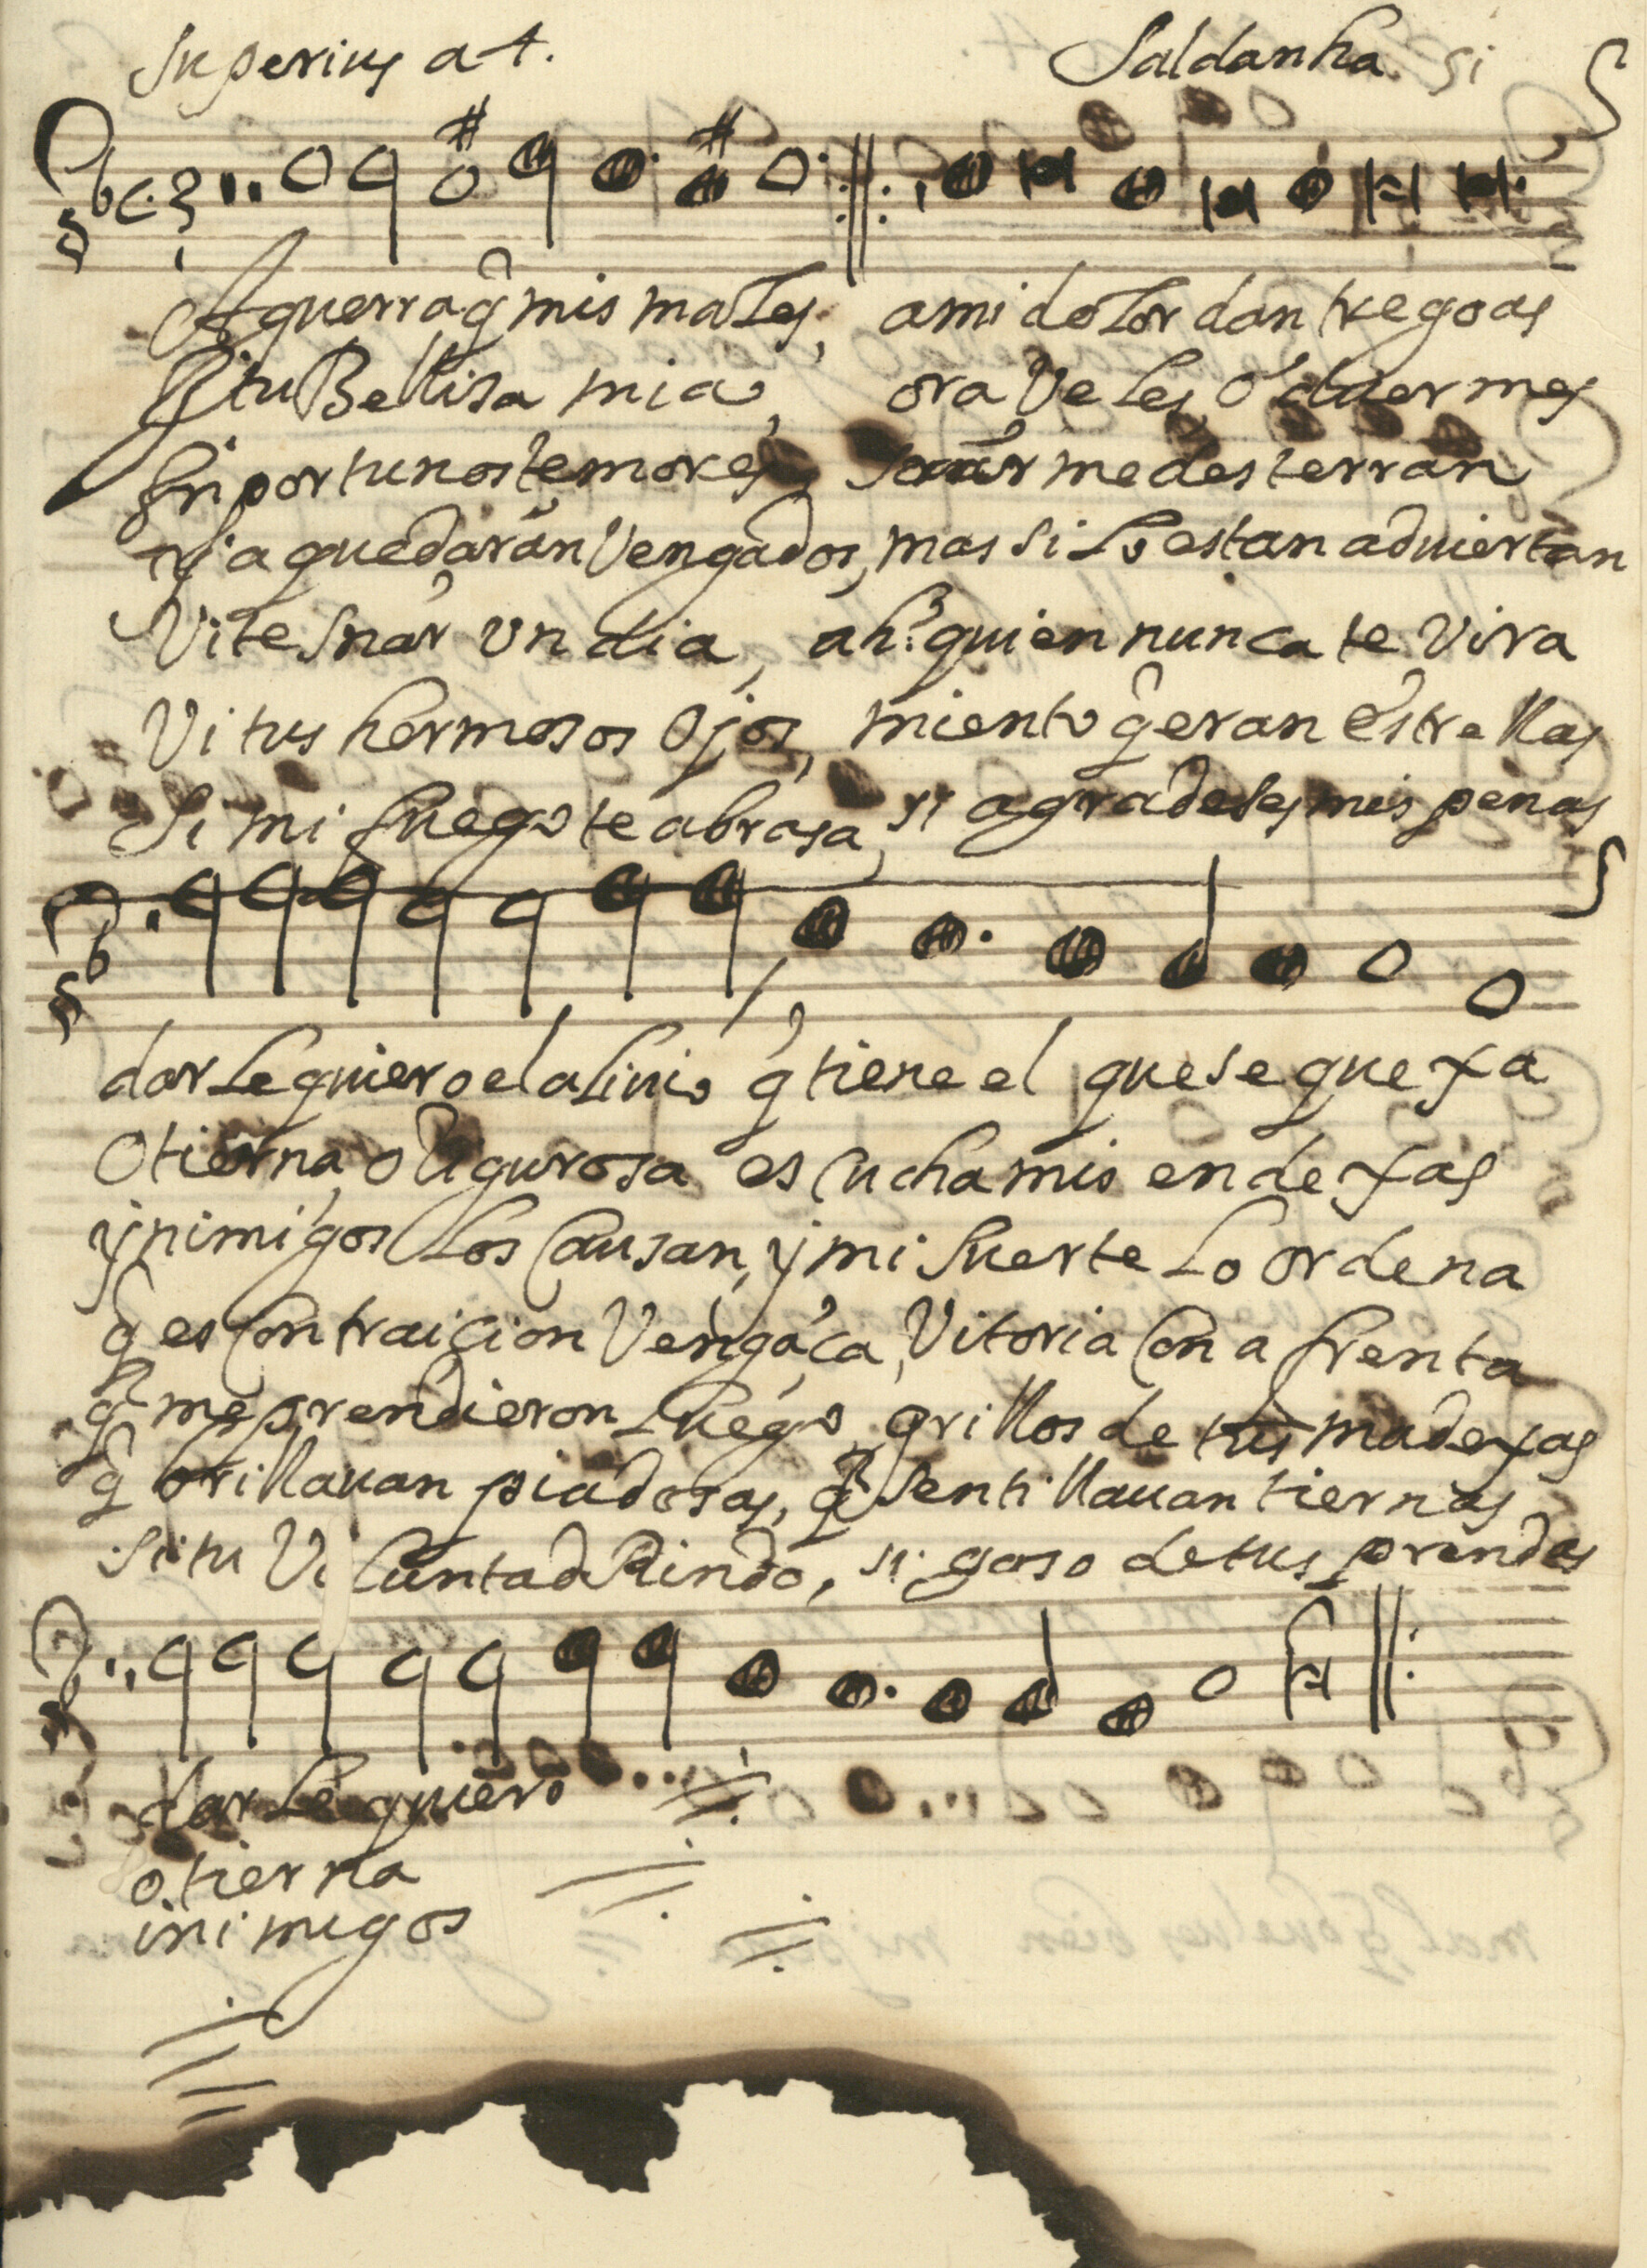 Superius a 4. Saldanha.
Aguerra q̃ mis males, ami dolor dan tregoas
tu Bellisa mia, ora Veles, o duermes
Inportunos temores, me desterran
ya quedaran Vengados, mas si lo estan aduiertan
Vite Snar Vn dia, ah! quien nunca te Vira
Vi tus hermosos Ojos, miento q̃ eran estrellas
Si mi fuego te abrasa, si agradeses mis penas
dar le quiero el aliuio q̃ tiene el que se quexa
O tierna, o Rigurosa escucha mis endexas
ynimigos los Causan, y mi Suerte lo ordena
q̃ es Con traicion Vengáça, Vitoria Con afrenta
q̃ me prendieron luego, grillos de tus madexas
q̃ brillauan piadosas, q̃ Sentillauan tiernas
Si tu Voluntad Rindo, si goso de tus prendas
dar le quiero
o tierna
inimigos